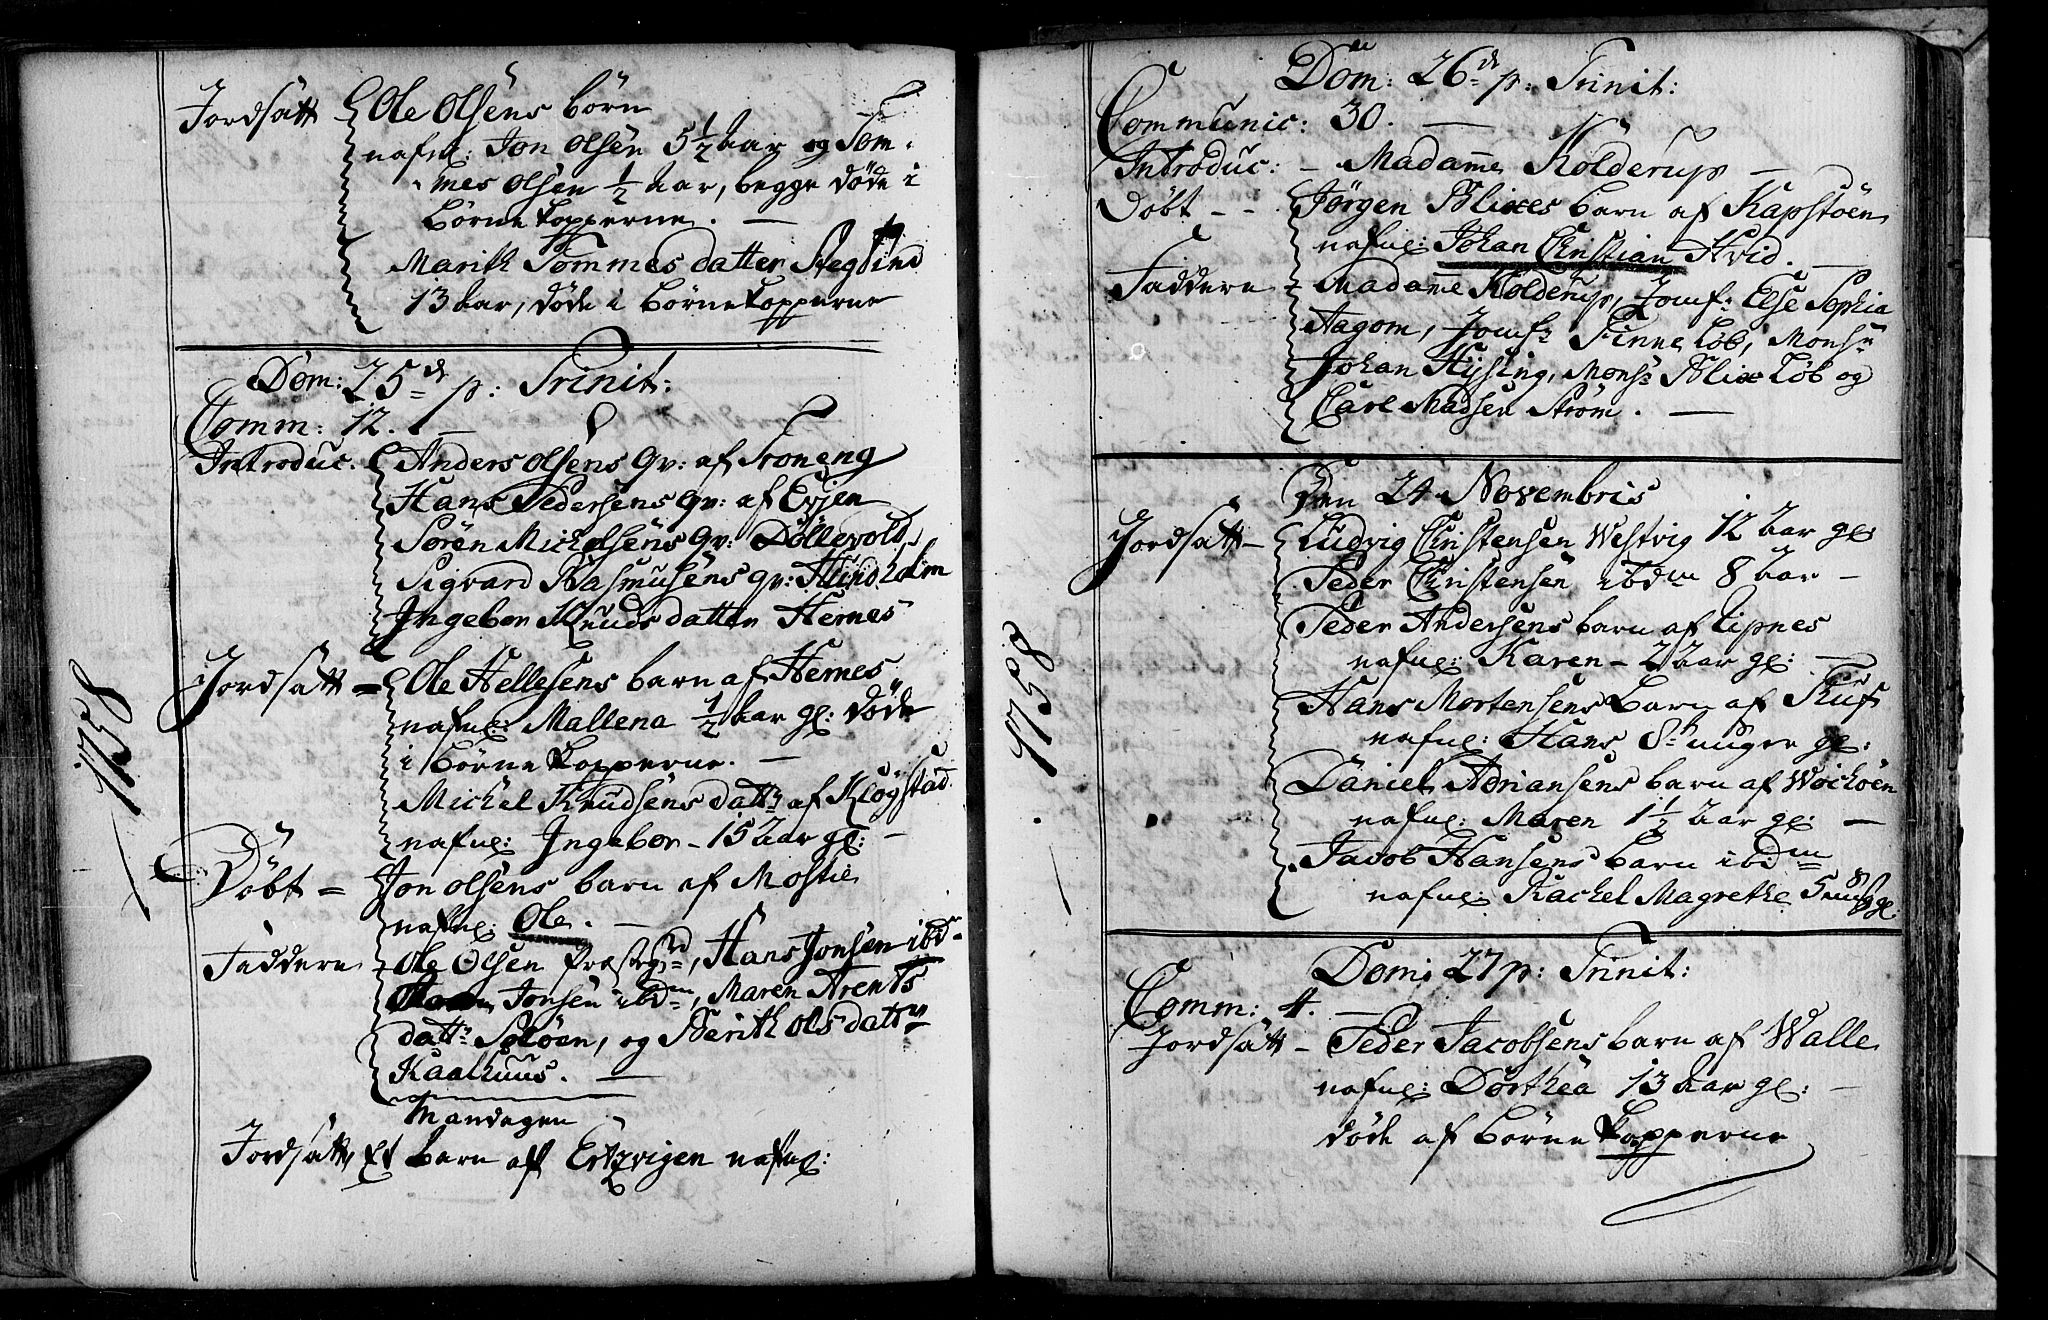 Jordsatt Ole Olsens børn
nafnl: Jon Olsen 5 1/2 Aar og Tom-
mes Olsen 1/2 Aar, begge døde i
Børne Kopperne. —
Marith Tommes datter
13 Aar, døde i Børne Kopperne
Dom: 25de p: Trinit:
Comm: 12. —
Introduc: Anders Olsens Qv: af Troneng
Hans Pedersens Qv: af Evjen
Søren Michelsens Qv: Döllevold
Sigvard Rasmusens Qv: Hindholm
Ingebor Knuds datter Hernes
Jordsatt = Ole Hellesens barn af Hernes
nafnl: Mallena 1/2 Aar gl: døde
i Børne Kopperne. —
Michel Knudsens dattr af Kløgstad
nafnl: Ingebor – 15 Aar gl: —
1758
Døbt = Jon Olsens barn af Mostie
nafnl: Ole. —
Faddere – Ole Olsen Præstegrd, Hans Jonsen ibd-
Jonsen ibdm, Maren Arents
dattr Soløen, og Berith Ols dattr
Kaalhuus. —
Mandagen
Jordsatt Et barn af Ertzvigen nafnl:
Dom: 26de p: Trinit:
Communic: 30. —
Introduc: – Madame Kolderup —
Døbt - - Jørgen Blixes barn af Kapstøen
nafnl: Johan Christian Hvid. —
Faddere – Madame Kolderup, Jomf: Else Sophia
Aagom, Jomfr Finne Løb, Monsr
Johan Hysing, Monsr Blix Løb og
Carl Madsen Strøm. —
Den 24 Novembris
Jordsatt – Ludvig Christensen Westvig 12 Aar gl
Peder Christensen ibdm 8 Aar –
Peder Andersens barn af Lipnes
nafnl: Karen – 2 Aar gl: —
1758
Hans Mortensens Barn af
nafnl: Hans 8te uuger gl:
Daniel Adriansens barn af
nafnl: Maren 1 1/2 Aar gl: —
Jacob Hansens barn ibdm
nafnl: Rachel Magrethe 5 uug gl
Dom: 27 p: Trinit:
Comm: 4. —
Jordsatt – Peder Jacobsens barn af Walle
nafnl: Dorthea 13 Aar gl: —
døde af Børne Kopperne